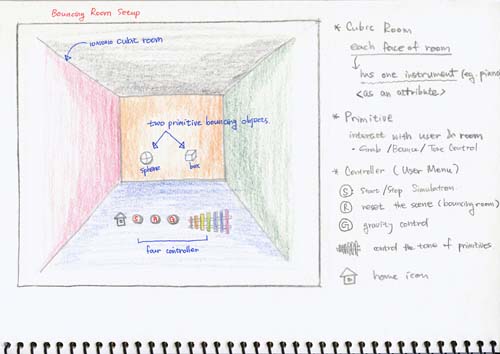 Bouncing Room Setup
10x10x10 cubic room
two primitive bouncing objects
sphere
box
S
R
G
four controller
* Cubic Room
each face of room
has one instrument (eg. piano
<as an attribute>
* Primitive
interact with user & room
• Grab / Bounce / Tone Control
* Controller (User Menu)
S Start/Stop Simulation
R reset the scene (bouncing room)
G gravity control
control the tone of primitives
home icon